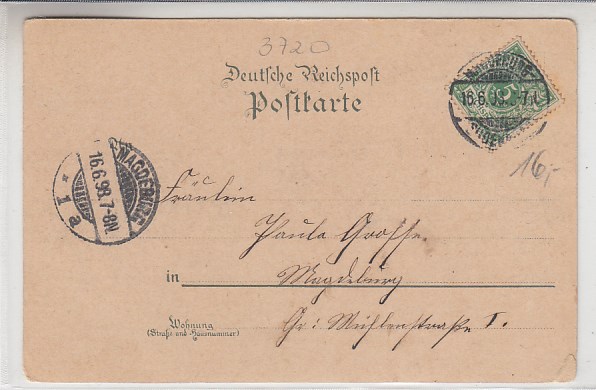 3720
Deutsche Reichspost
Postkarte
16.6.98. 7-
5
16,-
MAGDEBURG
16.6.98.7-8N
* 1 a
Fräulein
Paula Grosse.
in Magdeburg
Wohnung
(Straße und Hausnummer)
Gr: Mühlenstraße